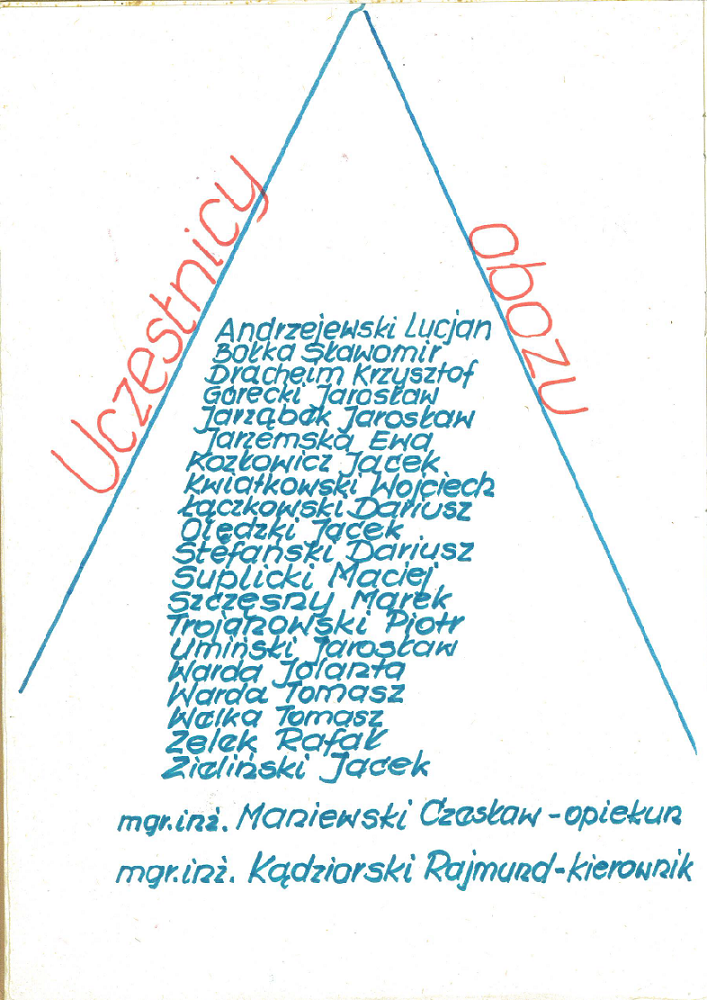 Uczestnicy obozu
Andrzejewski Lucjan
Bołka Sławomir
Dracheim Krzysztof
Górecki Jarosław
Jarząbek Jarosław
Jarzemska Ewa
Kozłowicz Jacek
Kwiatkowski Wojciech
Łączkowski Dariusz
Olędzki Jacek
Stefański Dariusz
Suplicki Maciej
Szczęsny Marek
Trojanowski Piotr
Umiński Jarosław
Warda Jolanta
Warda Tomasz
Walka Tomasz
Zelek Rafał
Zieliński Jacek
mgr.inż. Maniewski Czesław - opiekun
mgr.inż. Kądziorski Rajmund - kierownik